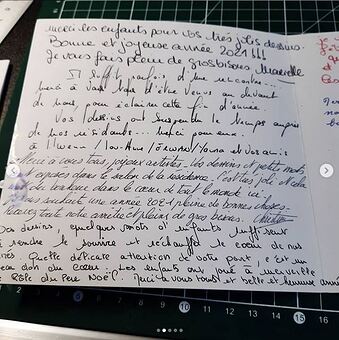 merci les enfants pour vos très jolis dessins.
Bonne et joyeuse année 2021 !!!
Je vous fais plein de gros bisous Murielle
Il suffit parfois d'une rencontre...
merci à vous tous d'être venus au devant
de nous, pour éclairer cette fin d'année.
Vos dessins ont suspendu le temps auprès
de nos résidants... merci pour eux.
à et vos amis
Merci à vous tous, joyeux artistes. Vos dessins et petits mots
exposés dans le salon de la résidence. C'est très joli et cela
du bonheur dans le cœur de tout le monde ici.
vous souhaite une année 2021 pleine de bonnes choses.
Recevez toute notre amitié et pleins de gros bisous. Christine
Des dessins, quelques mots d'enfants suffisent
à rendre le sourire et réchauffer le cœur de nos
Quelle délicate attention de votre part, c'est un
don du cœur. Les enfants ont joué à merveille
rôle du Père Noël. Merci à vous tous et belle et heureuse année
2 3 4 5 6 7 8 9 10 11 12 13 14 15 16